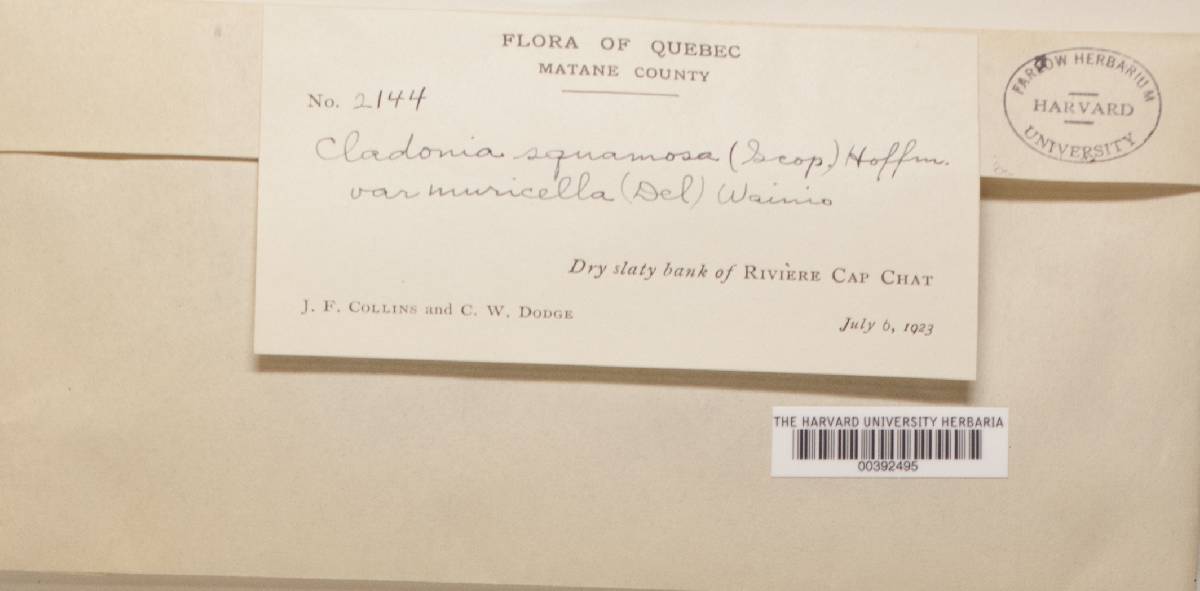 FLORA OF QUEBEC
MATANE COUNTY
No. 2144
Cladonia squamosa (Scop.) Hoffm.
var muricella (Del) Wainio
Dry slaty bank of RIVIÈRE CAP CHAT
J. F. COLLINS and C. W. DODGE
July 6, 1923
FARLOW HERBARIUM
HARVARD
UNIVERSITY
THE HARVARD UNIVERSITY HERBARIA
00392495